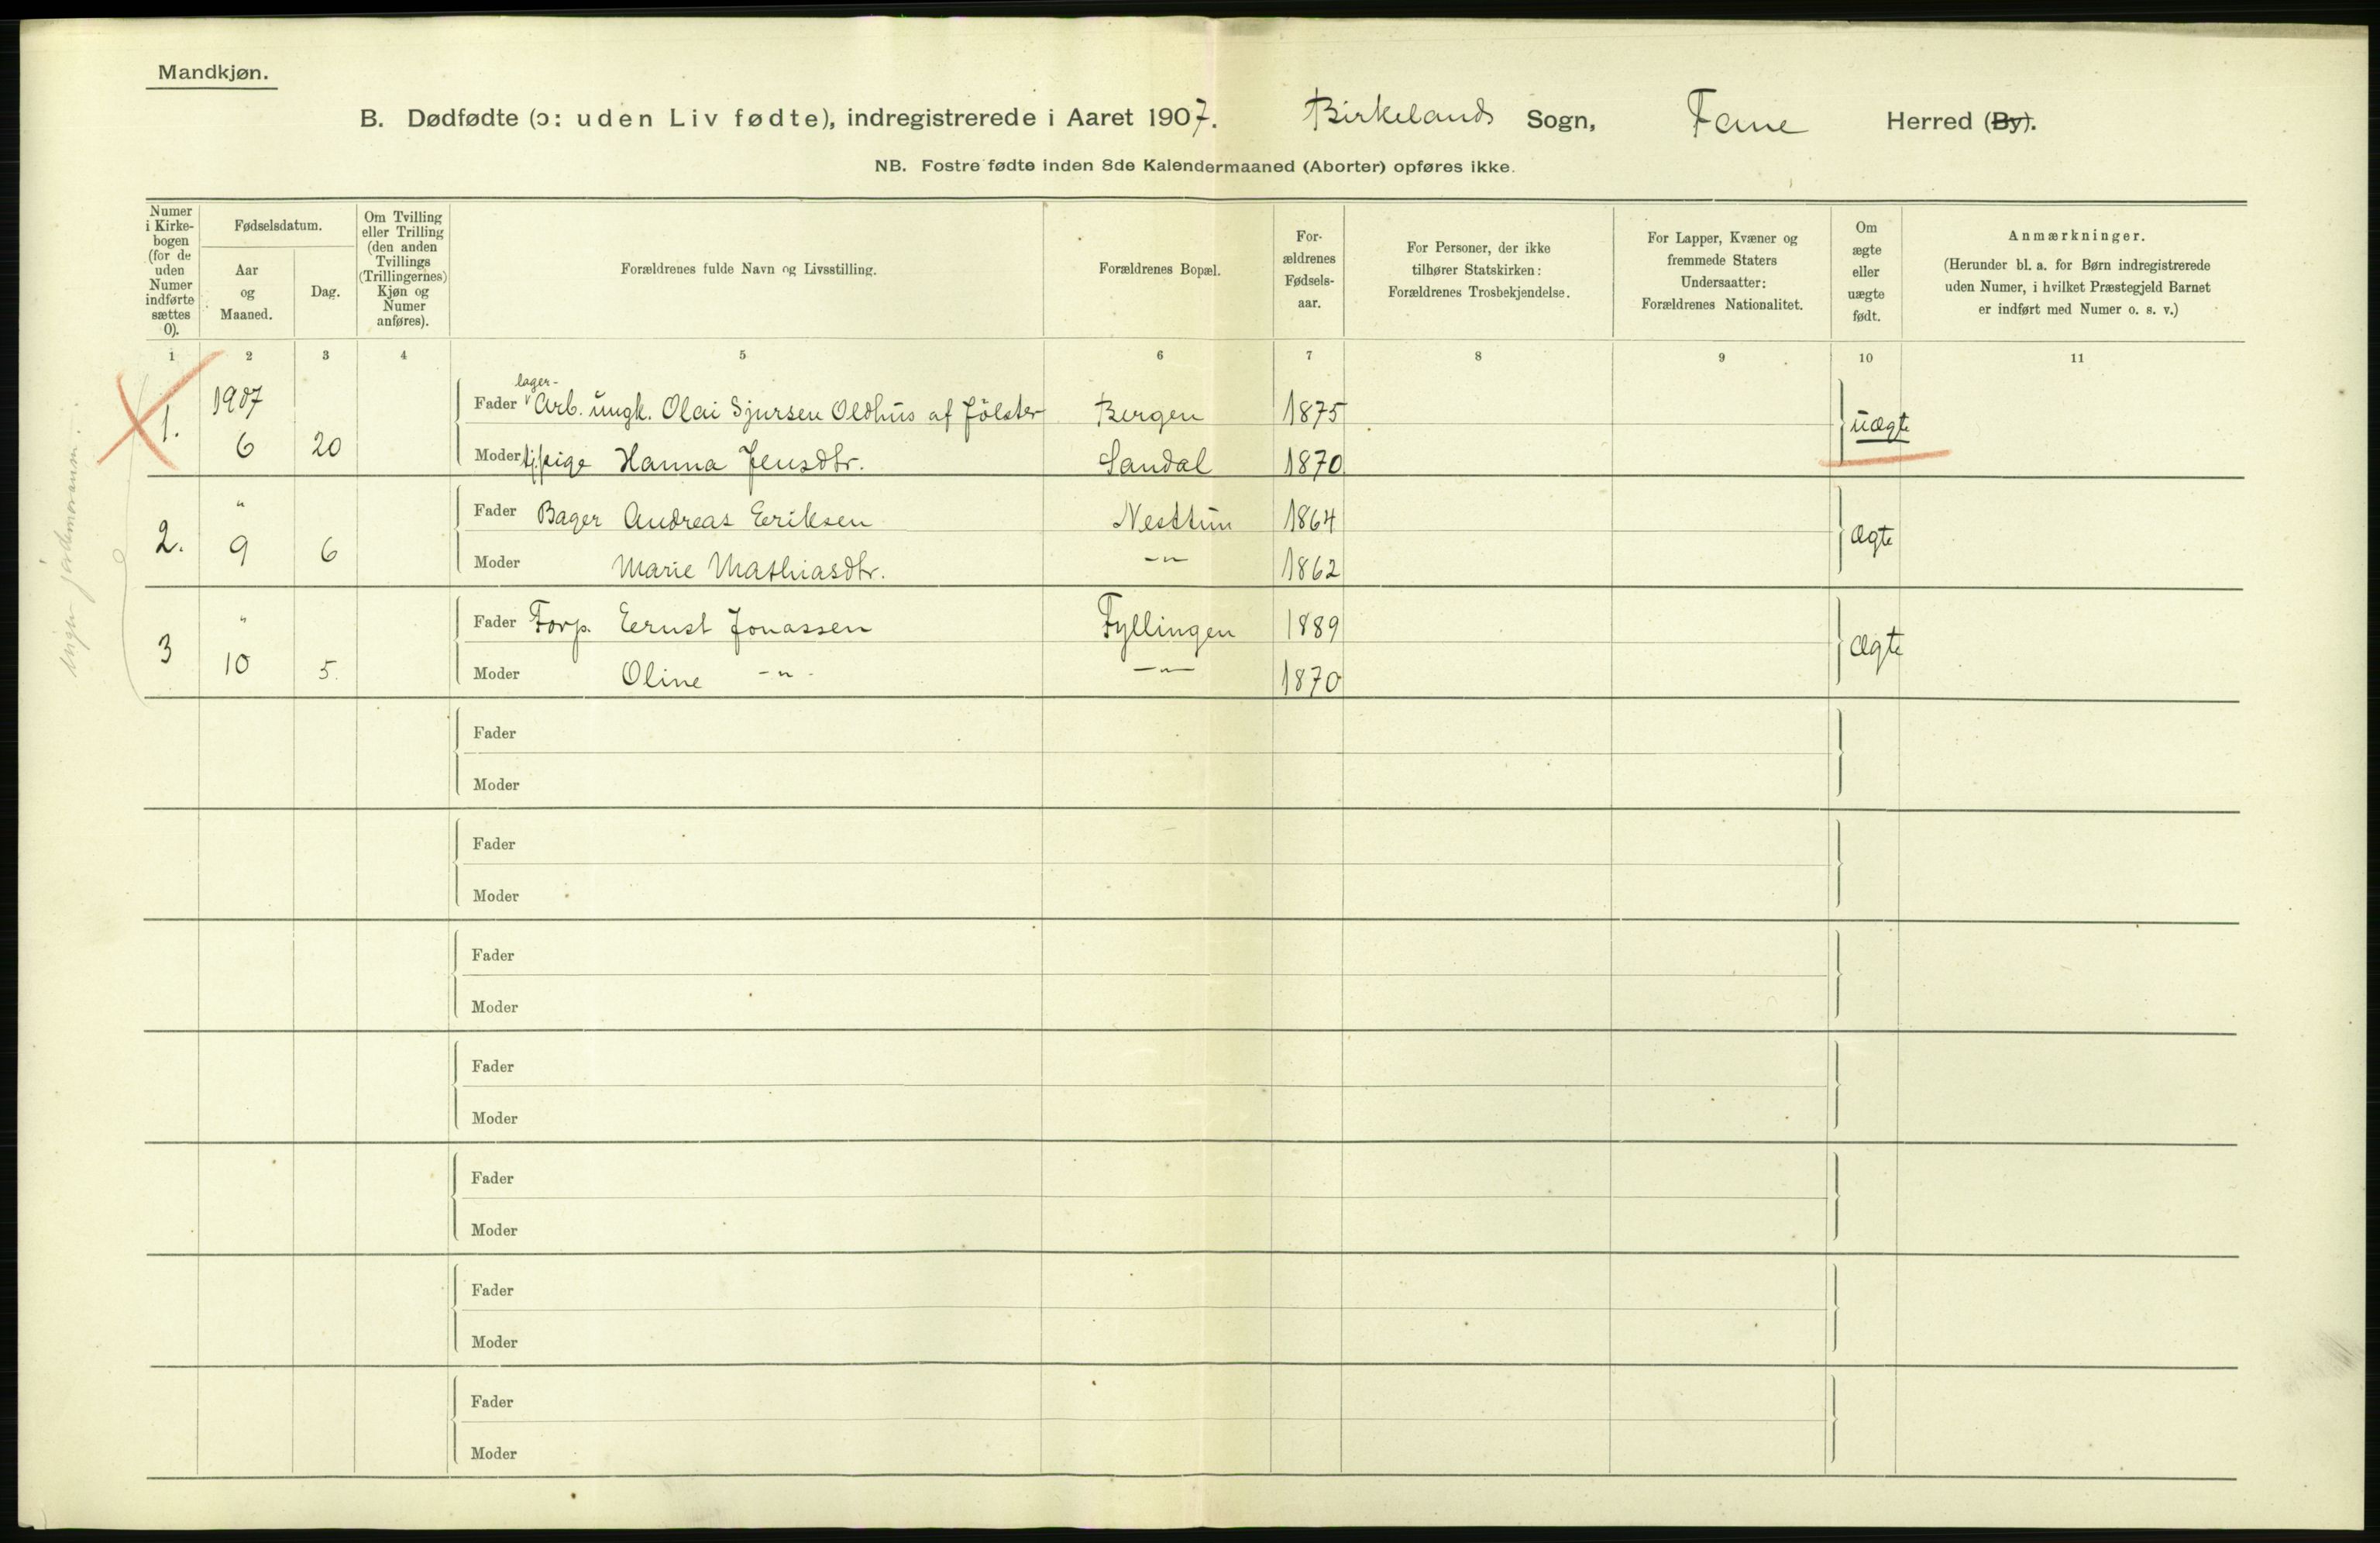 Mandkjøn.
B. Dødfødte (ɔ: uden Liv fødte), indregistrerede i Aaret 1907. Birkelands Sogn, Fane Herred (By).
NB. Fostre fødte inden 8de Kalendermaaned (Aborter) opføres ikke.
Numer
i Kirke-
bogen
(for de
uden
Numer
indførte
sættes
0).
Fødselsdatum.
Aar
og
Maaned.
Dag.
Om Tvilling
eller Trilling
(den anden
Tvillings
(Trillingernes)
Kjøn og
Numer
anføres).
Forældrenes fulde Navn og Livsstilling.
Forældrenes Bopæl.
For-
ældrenes
Fødsels-
aar.
For Personer, der ikke
tilhører Statskirken:
Forældrenes Trosbekjendelse.
For Lapper, Kvæner og
fremmede Staters
Undersaatter:
Forældrenes Nationalitet.
Om
ægte
eller
uægte
født.
Anmærkninger.
(Herunder bl. a. for Børn indregistrerede
uden Numer, i hvilket Præstegjeld Barnet
er indført med Numer o. s. v.)
1 2 3 4 5 6 7 8 9 10 11
lager-
1. 1907 Fader Arb. ungk. Olai Sjursen Oldhus af Jölster Bergen 1875 uægte
6 20 Moder tj.pige Hanna Jensdtr. Sandal 1870
2. " Fader Bager Andreas Eeriksen Nesttun 1864 Ægte
9 6 Moder Marie Mathiasdtr. -"- 1862
3 " Fader Forp. Eernst Jonassen Fyllingen 1889 Ægte
10 5. Moder Oline -"- -"- 1870
Fader
Moder
Fader
Moder
Fader
Moder
Fader
Moder
Fader
Moder
Fader
Moder
Fader
Moder